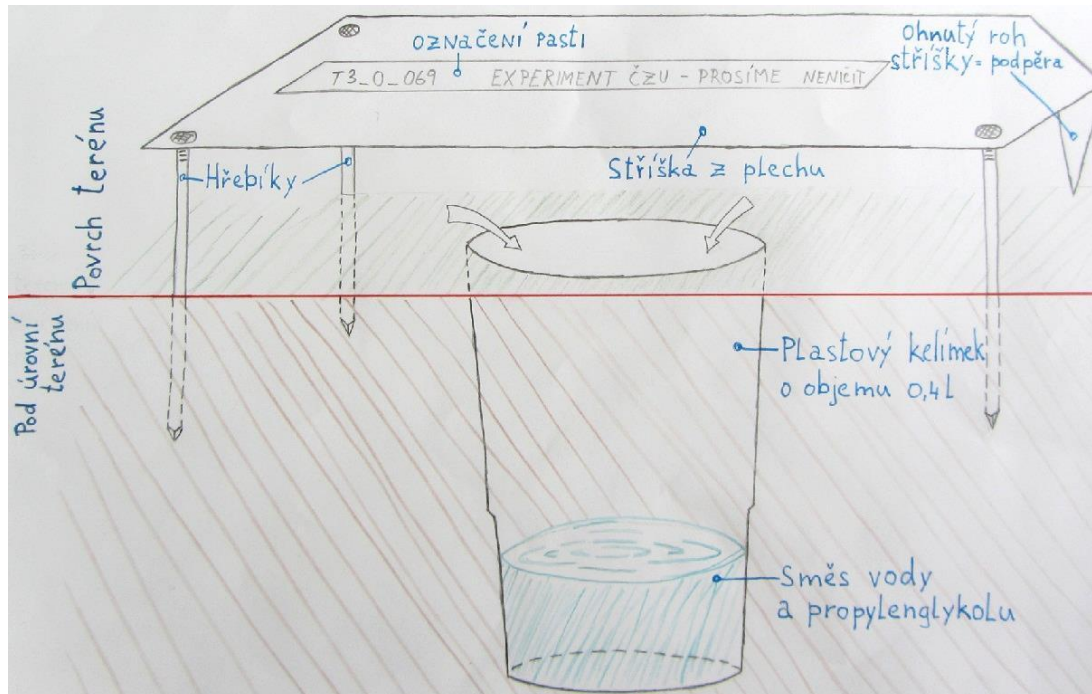 označení pasti
T3_0_069 EXPERIMENT ČZU - PROSÍME NENIČIT
Ohnutý roh
stříšky = podpěra
Hřebíky
Stříška z plechu
Povrch terénu
Pod úrovní
terénu
Plastový kelímek
o objemu 0,4l
Směs vody
a propylenglykolu